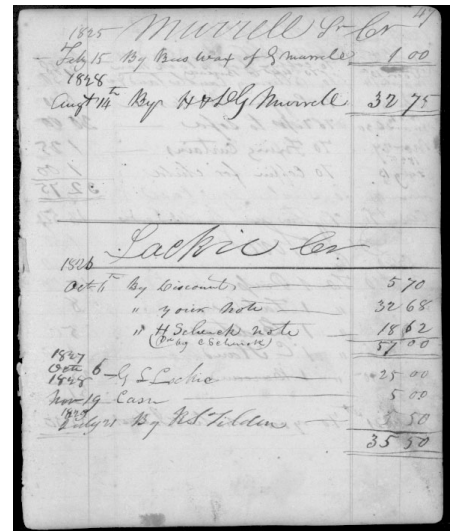 47
1825 Murrell Sr Cr
Feby 15 By Bees wax of G Murrele 1 00
1828
Augt 14th By H & LG Murrell 32 75
Lackie Cr
1826
Oct 11th By Discount 5 70
" your Note 32 68
" H Schenck note 18 62
(Pr by C Schenck) 57 00
1827
Octr 6 G S Lackie 25 00
1828
Nov 19 Cash 5 00
July 21 By R S Tilden 5 50
35 50